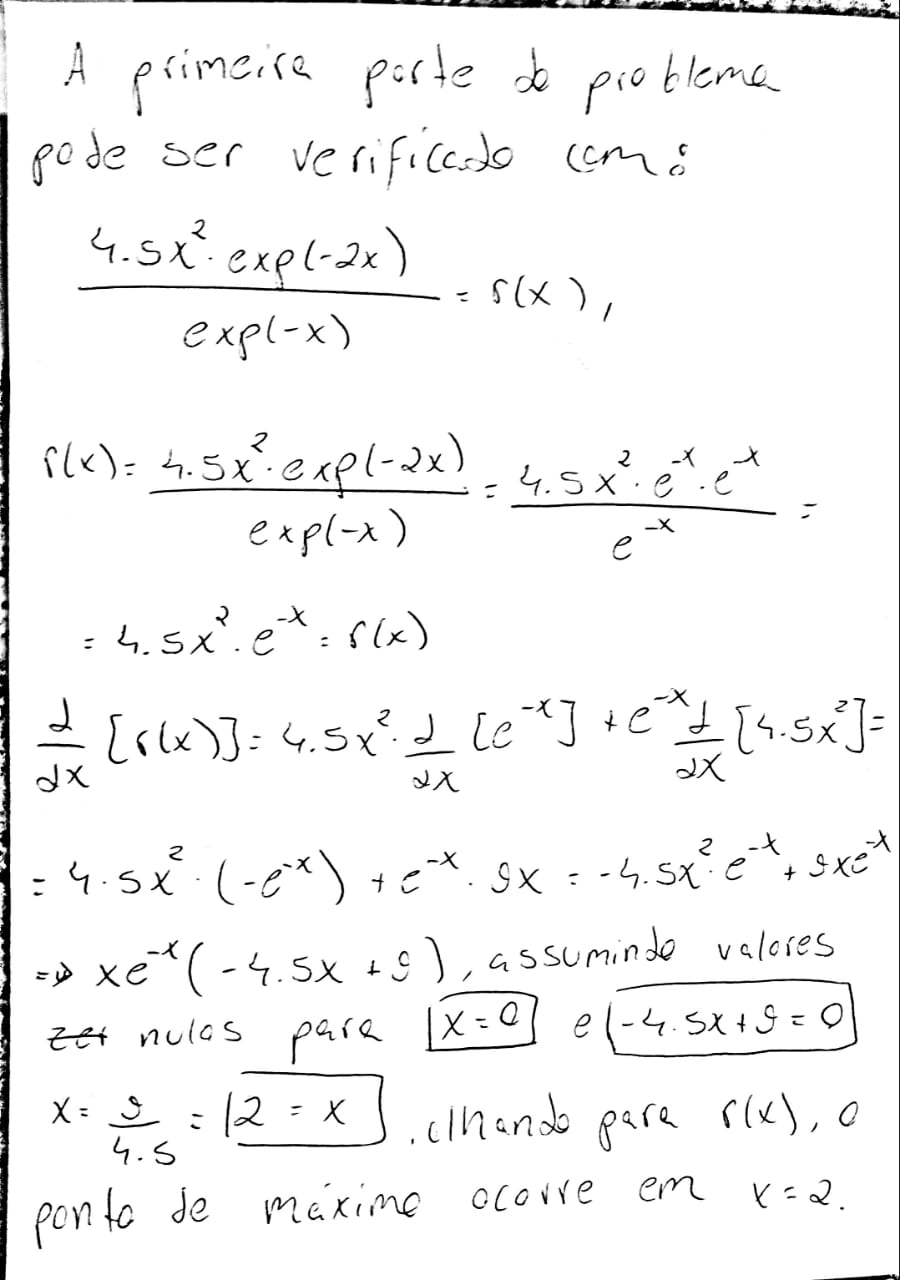 A primeira parte do problema
pode ser verificado com:
4.5x². exp(-2x) / exp(-x) = r(x),
r(x) = 4.5x². exp(-2x) / exp(-x) = 4.5x². e^-x. e^-x / e^-x =
= 4.5x². e^-x = r(x)
d/dx [r(x)] = 4.5x². d/dx [e^-x] + e^-x d/dx [4.5x²] =
= 4.5x². (-e^-x) + e^-x. 9x = -4.5x². e^-x + 9xe^-x
=> xe^-x (-4.5x + 9), assumindo valores
nulos para x=0 e -4.5x+9=0
x = 9/4.5 = 2 = x . olhando para r(x), o
ponto de máximo ocorre em x=2.